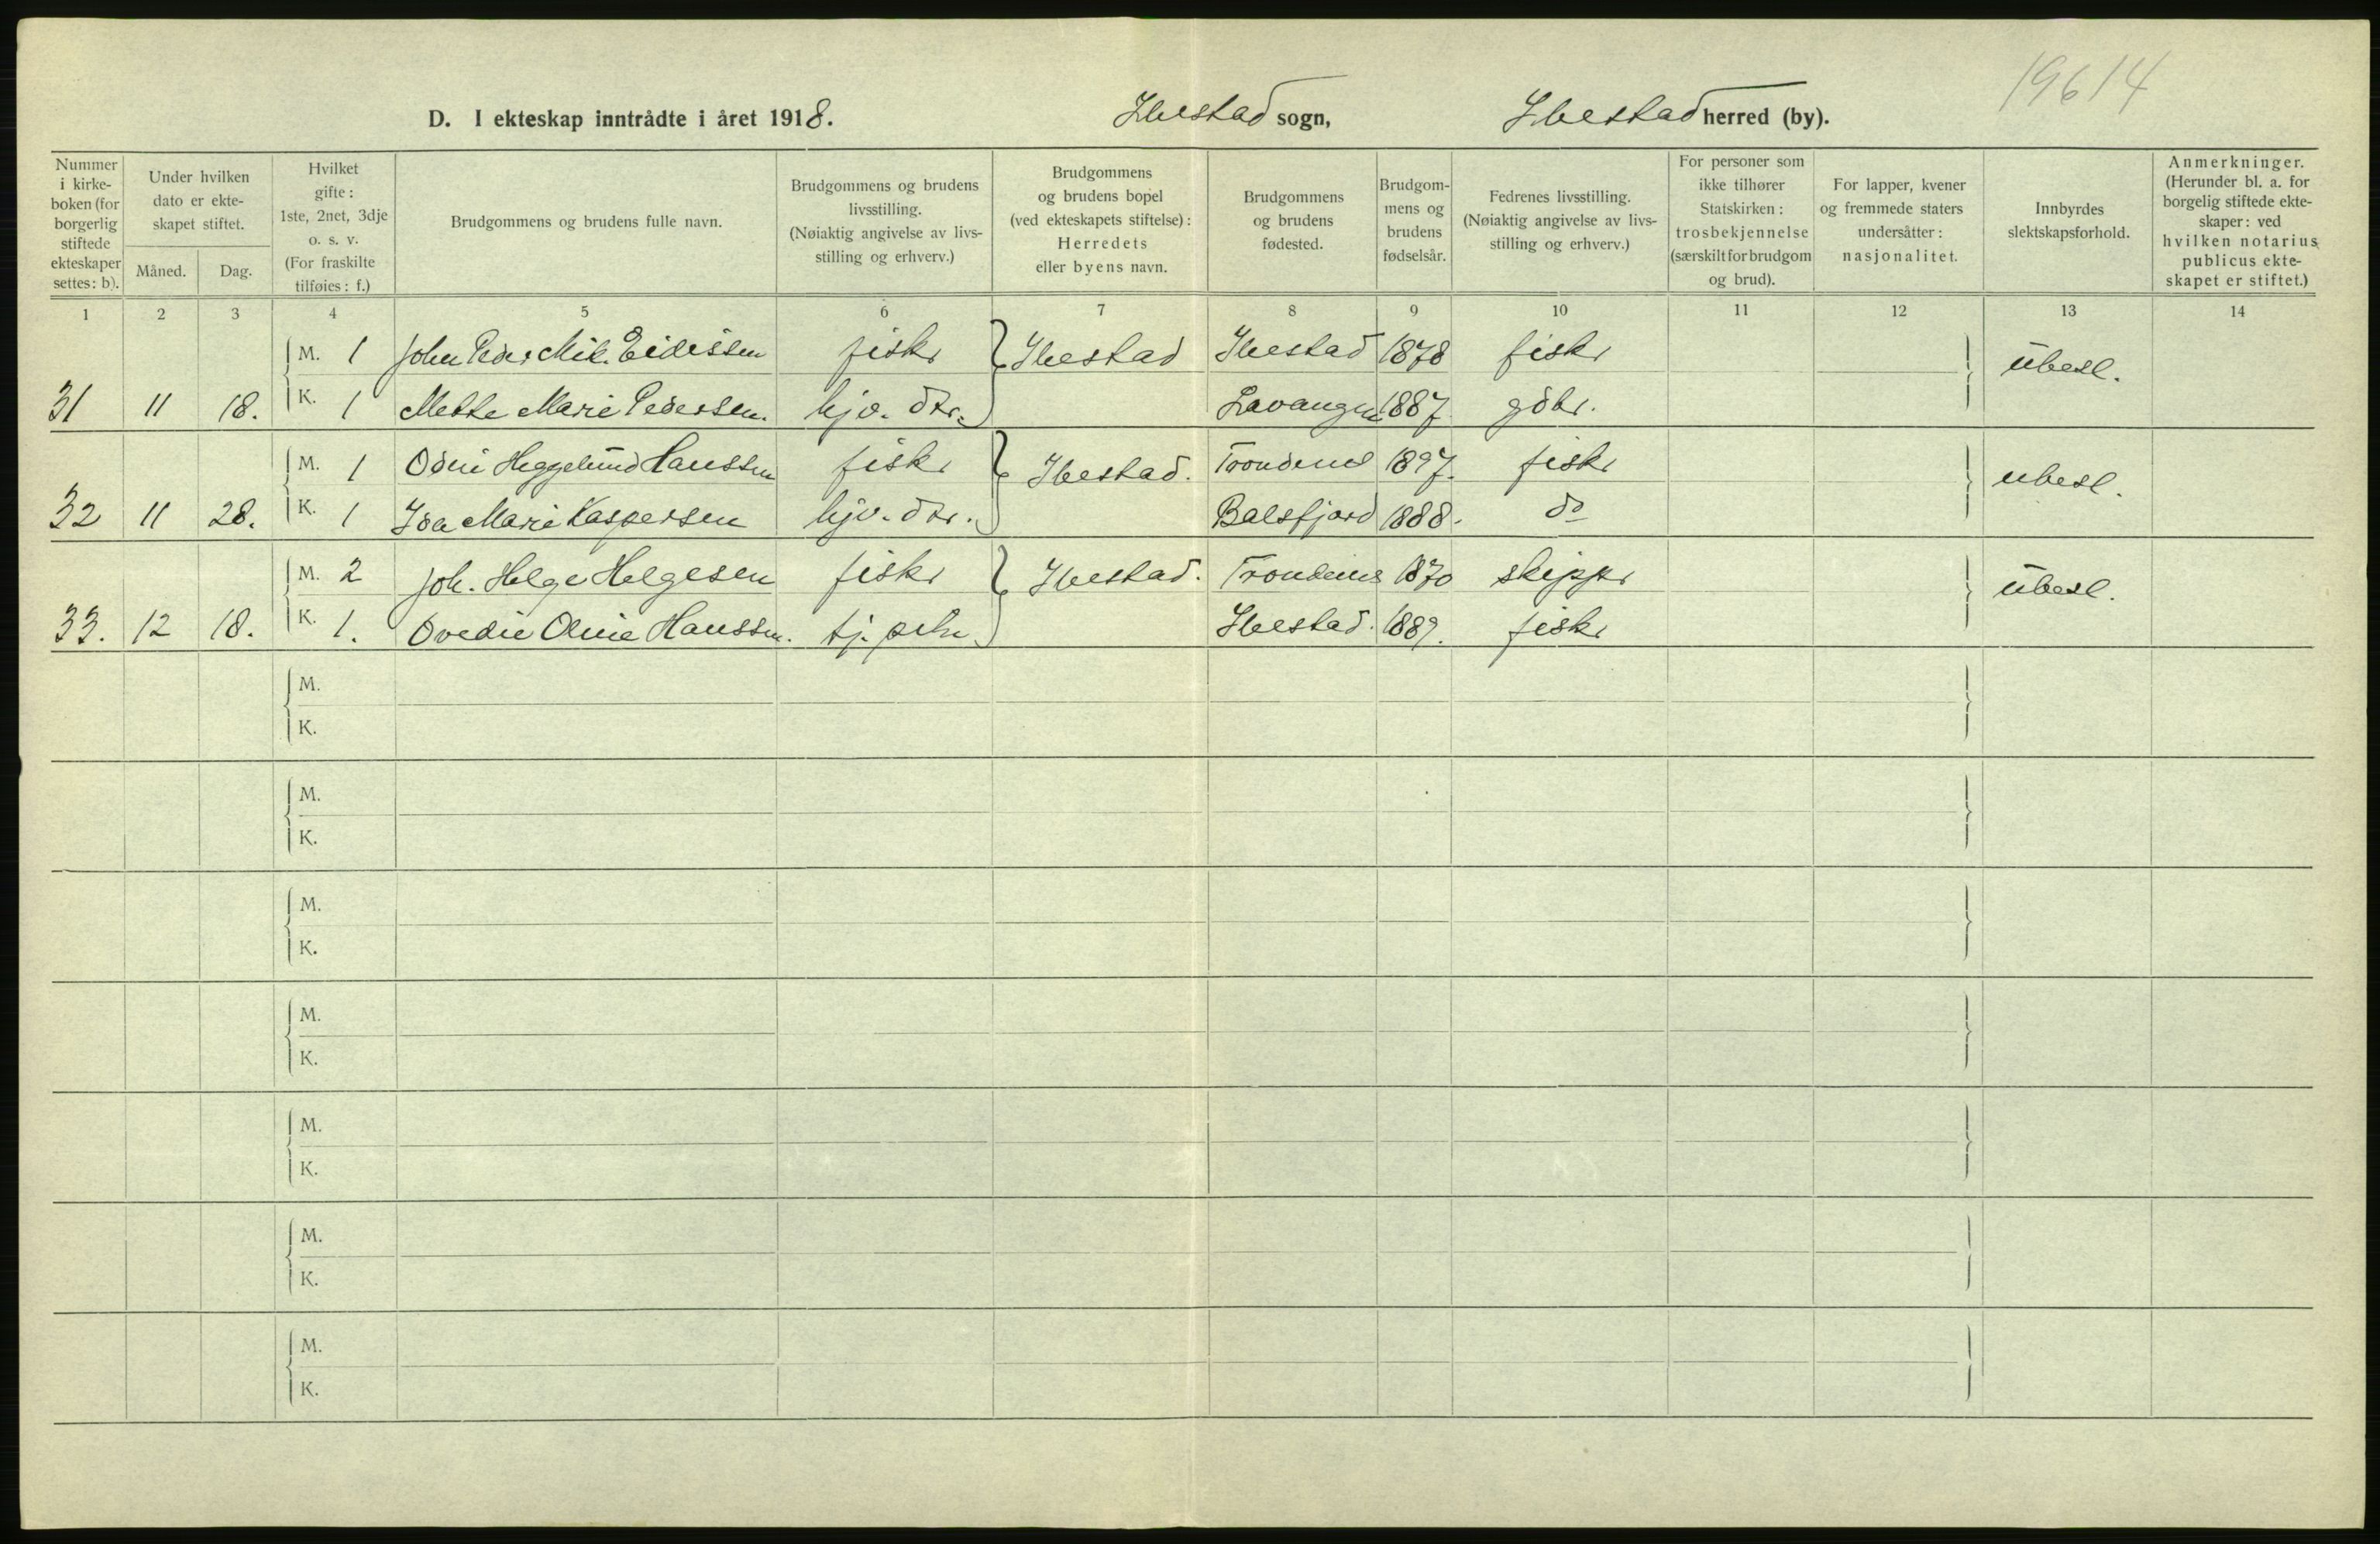 19614
D. I ekteskap inntrådte i året 1918. Ibestad sogn, Ibestad herred (by).
Nummer i kirkeboken (for borgerlig stiftede ekteskaper settes: b).
Under hvilken dato er ekteskapet stiftet.
Måned. Dag.
Hvilket gifte: 1ste, 2net, 3dje o. s. v. (For fraskilte tilføies: f.)
Brudgommens og brudens fulle navn.
Brudgommens og brudens livsstilling. (Nøiaktig angivelse av livsstilling og erhverv.)
Brudgommens og brudens bopel (ved ekteskapets stiftelse): Herredets eller byens navn.
Brudgommens og brudens fødested.
Brudgommens og brudens fødselsår.
Fedrenes livsstilling. (Nøiaktig angivelse av livsstilling og erhverv.)
For personer som ikke tilhører Statskirken: trosbekjennelse (særskilt for brudgom og brud).
For lapper, kvener og fremmede staters undersåtter: nasjonalitet.
Innbyrdes slektskapsforhold.
Anmerkninger. (Herunder bl. a. for borgelig stiftede ekteskaper: ved hvilken notarius publicus ekteskapet er stiftet.)
1 2 3 4 5 6 7 8 9 10 11 12 13 14
M. 1 John Peder Mik. Eidissen fiskr Ibestad Ibestad 1878 fiskr ubesl.
31 11 18. K. 1 Mette Marie Pedersen. hjv. dtr. Lavangen 1887 gdbr.
M. 1 Odni Heggelund Hanssen fiskr Ibestad. Trondenes 1897. fiskr ubesl.
32 11 28. K. 1 Ida Marie Kaspersen hjv. dtr. Balsfjord 1888. do
M. 2 Joh. Helge Helgesen fiskr Ibestad. Trondenes 1870 skippr ubesl.
33. 12 18. K. 1. Ovedie Oluie Hanssen. tj. Ibestad. 1889. fiskr
M.
K.
M.
K.
M.
K.
M.
K.
M.
K.
M.
K.
M.
K.